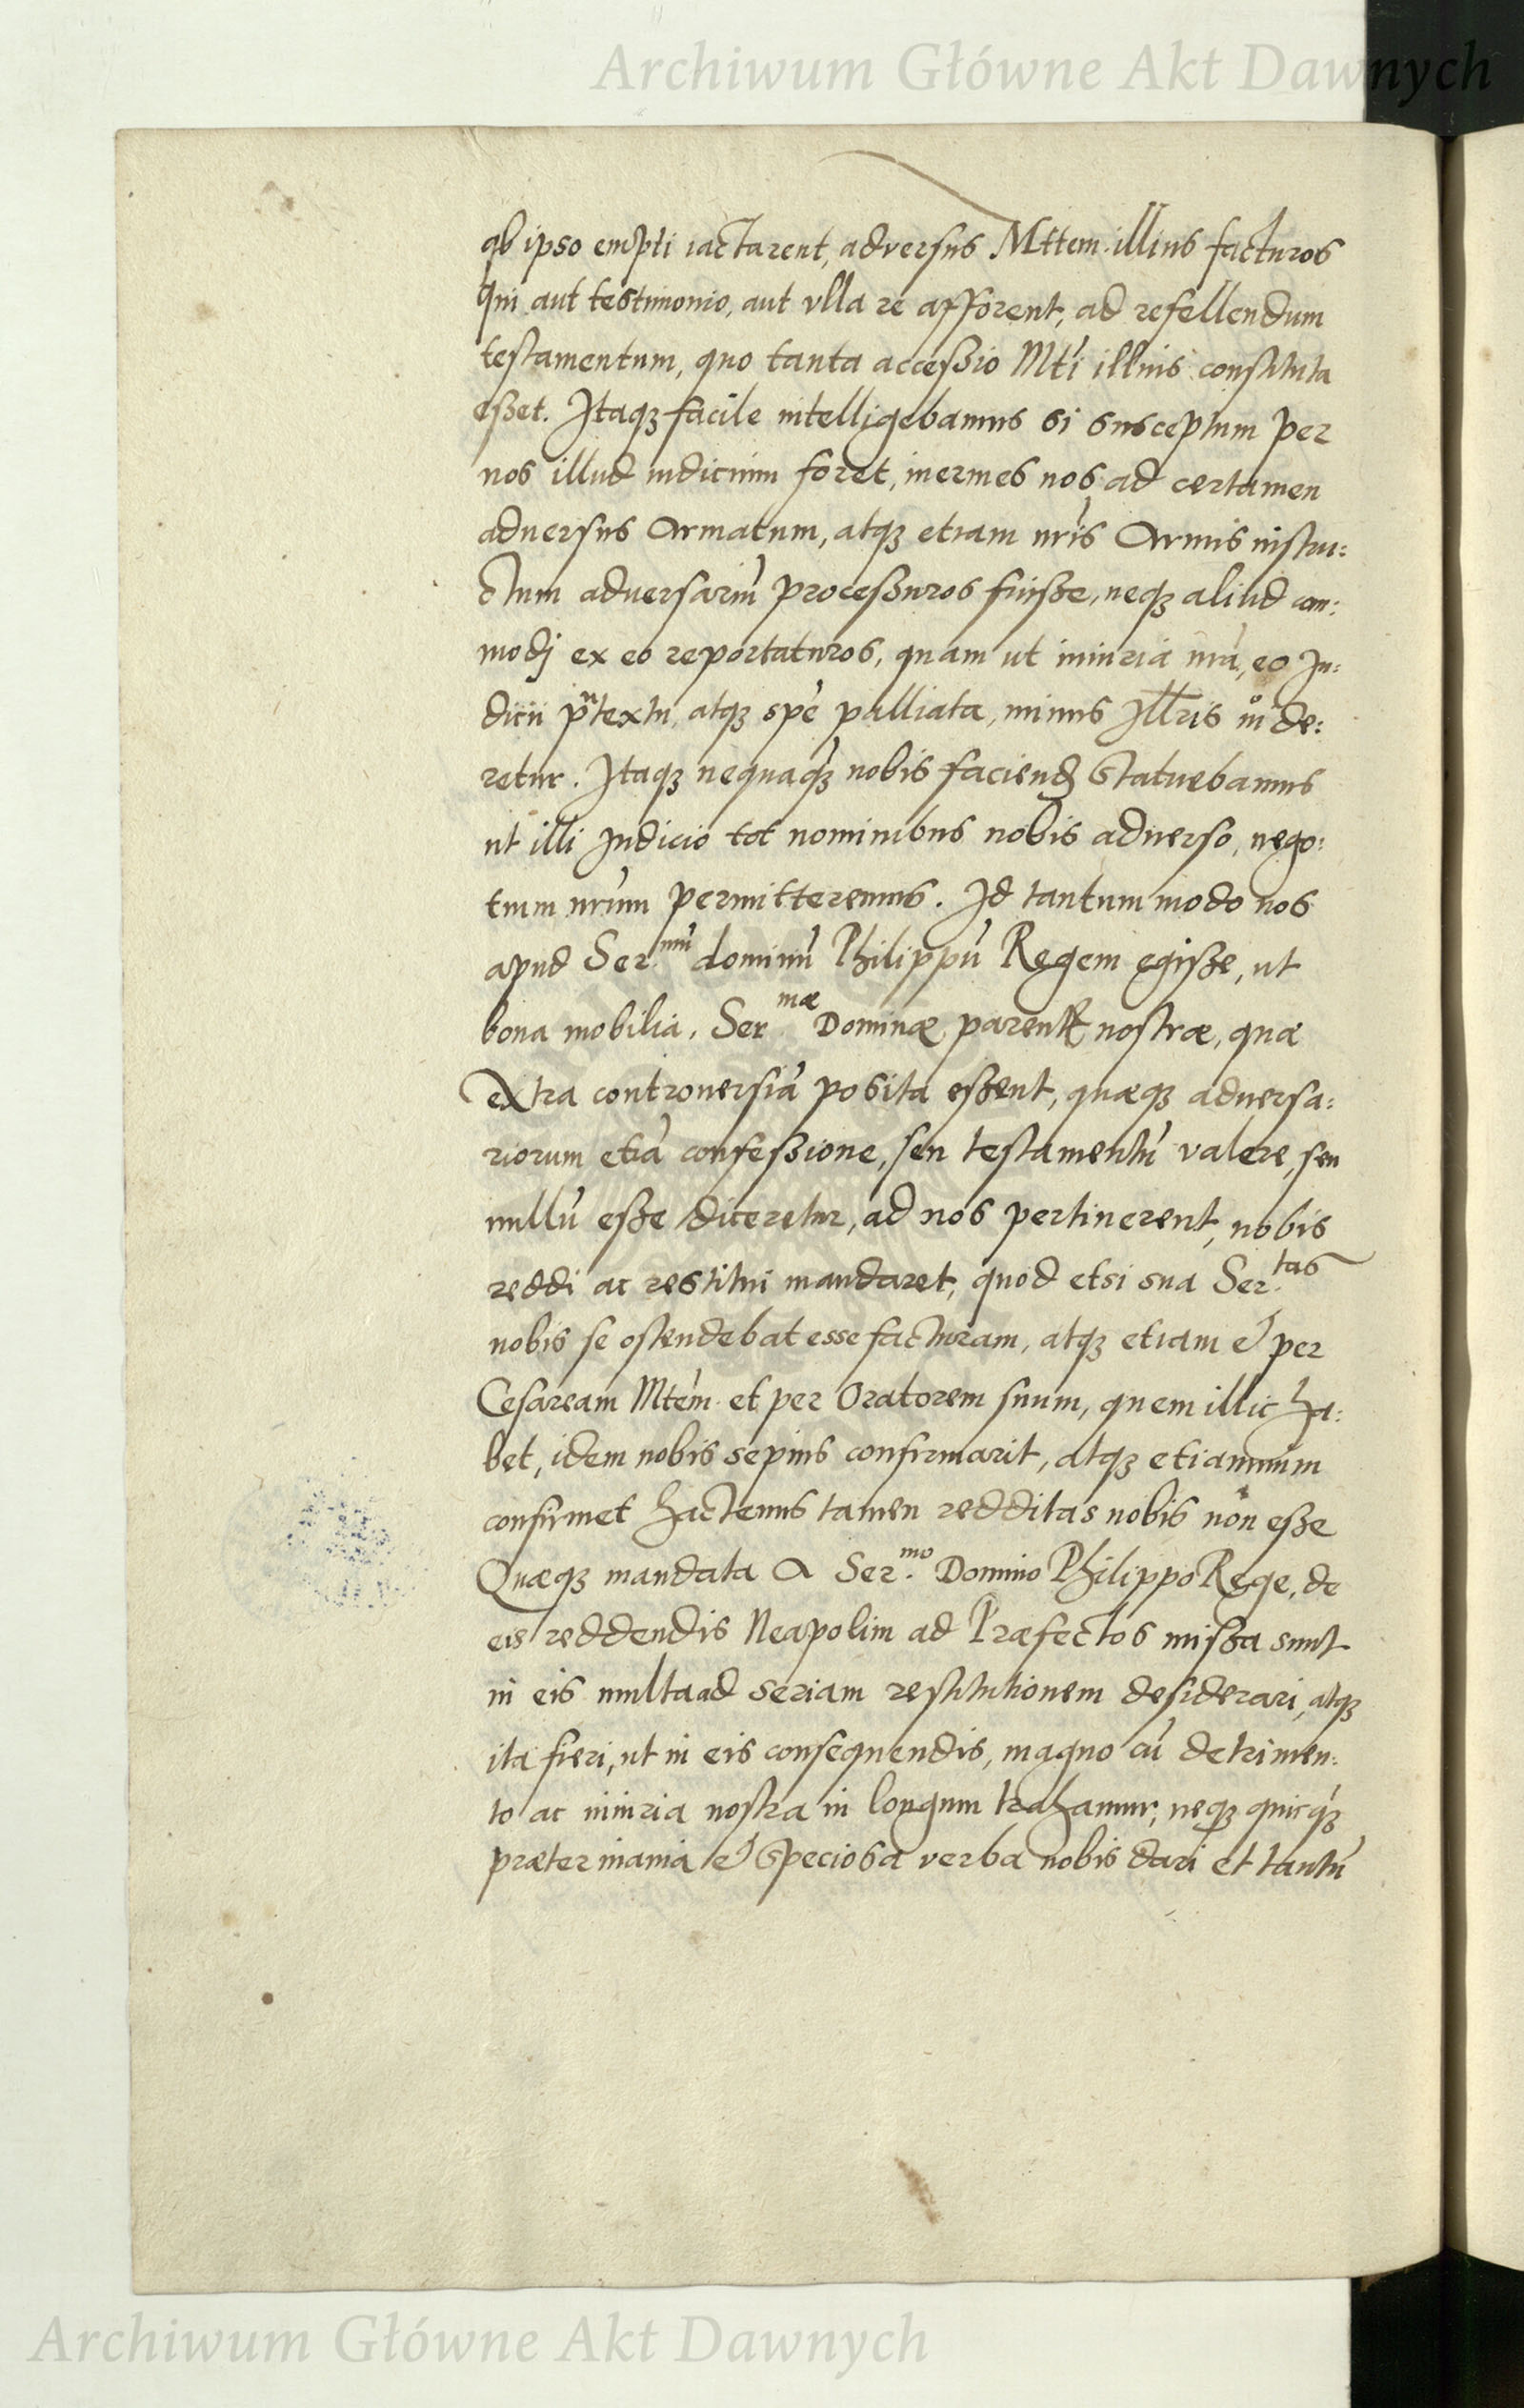 Archiwum Główne Akt Dawnych
ab ipso empti iactarent, adversus Mttem. illius facturos
qui aut testimonio, aut vlla re afforent, ad refellendum
testamentum, quo tanta accessio Mti illius constituta
esset. Itaq3 facile intelligebamus si susceptum per
nos illud iudicium foret, inermes nos ad certamen
aduersus Armatum, atq3 etiam nr̃is Armis instru:
ctum aduersariũ processuros fuisse, neq3 aliud com:
modj ex eo reportaturos, quam ut iniuria nr̃a, eo Iu:
dicii textu, atq3 spẽ palliata, minus Ill̃ris uide:
retur. Itaq3 nequaq̃3 nobis faciend̃ statuebamus
ut illi Iudicio tot nominibus nobis aduerso, nego:
tium nr̃um permitteremus. Id tantum modo nos
apud Ser.mũ dominũ Philippũ Regem egisse, ut
bona mobilia, Ser.mæ Dominæ parentis nostræ, quæ
extra controuersiã posita essent, quæq3 aduersa:
riorum etiã confessione, seu testamentũ valere, seu
nullũ esse diceretur, ad nos pertinerent, nobis
reddi ac restitui mandaret, quod etsi sua Ser.tas
nobis se ostendebat esse facturam, atq3 etiam & per
Cesaream Mtẽm et per Oratorem suum, quem illic ha:
bet, idem nobis sepius confirmarit, atq3 etiamnum
confirmet hactenus tamen redditas nobis non esse
Quæq3 mandata A Ser.mo Domino Philippo Rege, de
eis reddendis Neapolim ad Præfectos missa sunt
in eis multa ad seriam restitutionem desiderari, atq3
ita fieri, ut in eis consequendis, magno cũ detrimen:
to ac iniuria nostra in longum trahamur, neq3 quicq̃3
præter inania & speciosa verba nobis dari et tantũ
Archiwum Główne Akt Dawnych